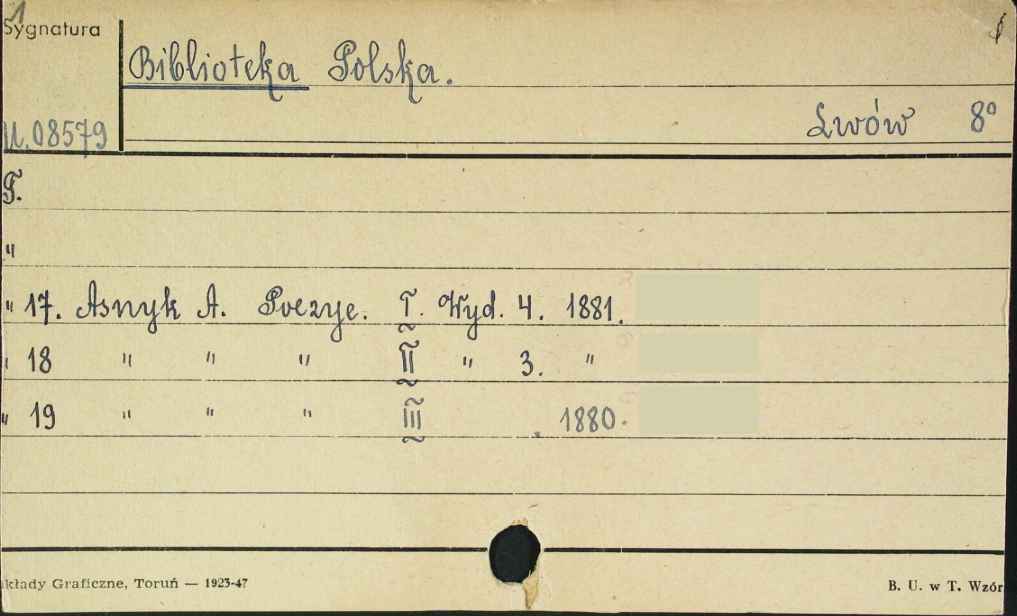 1
Sygnatura
Biblioteka Polska.
U.08579 Lwów 8°
T.
"
" 17. Asnyk A. Poezye. I. Wyd. 4. 1881.
" 18 " " " II " 3. "
" 19 " " " III . 1880.
kłady Graficzne, Toruń — 1923-47 B. U. w T. Wzór